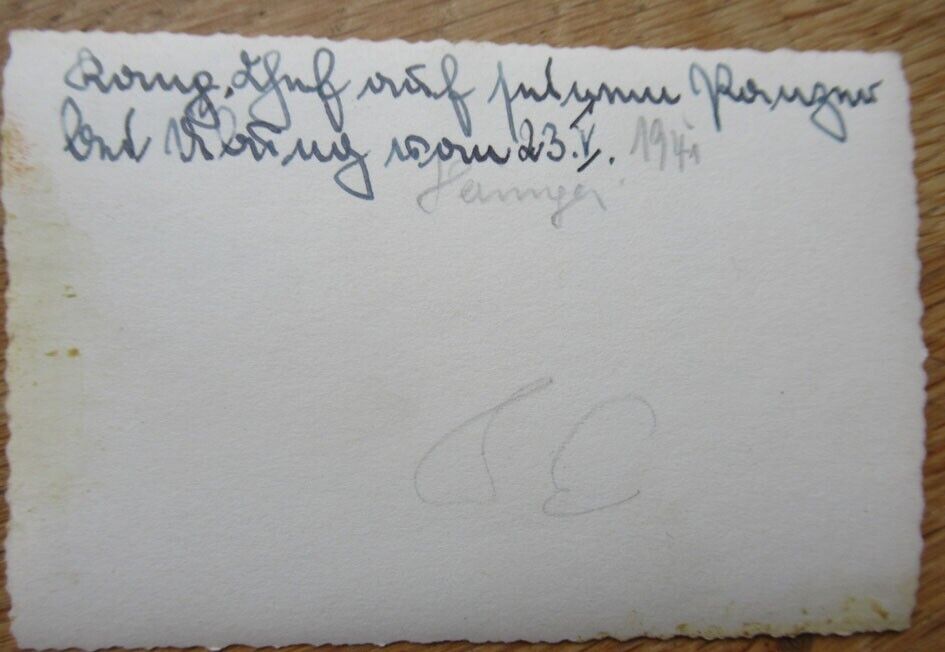 Komp. Chef auf seinem Panzer
bei Übung vom 23.V. 1941